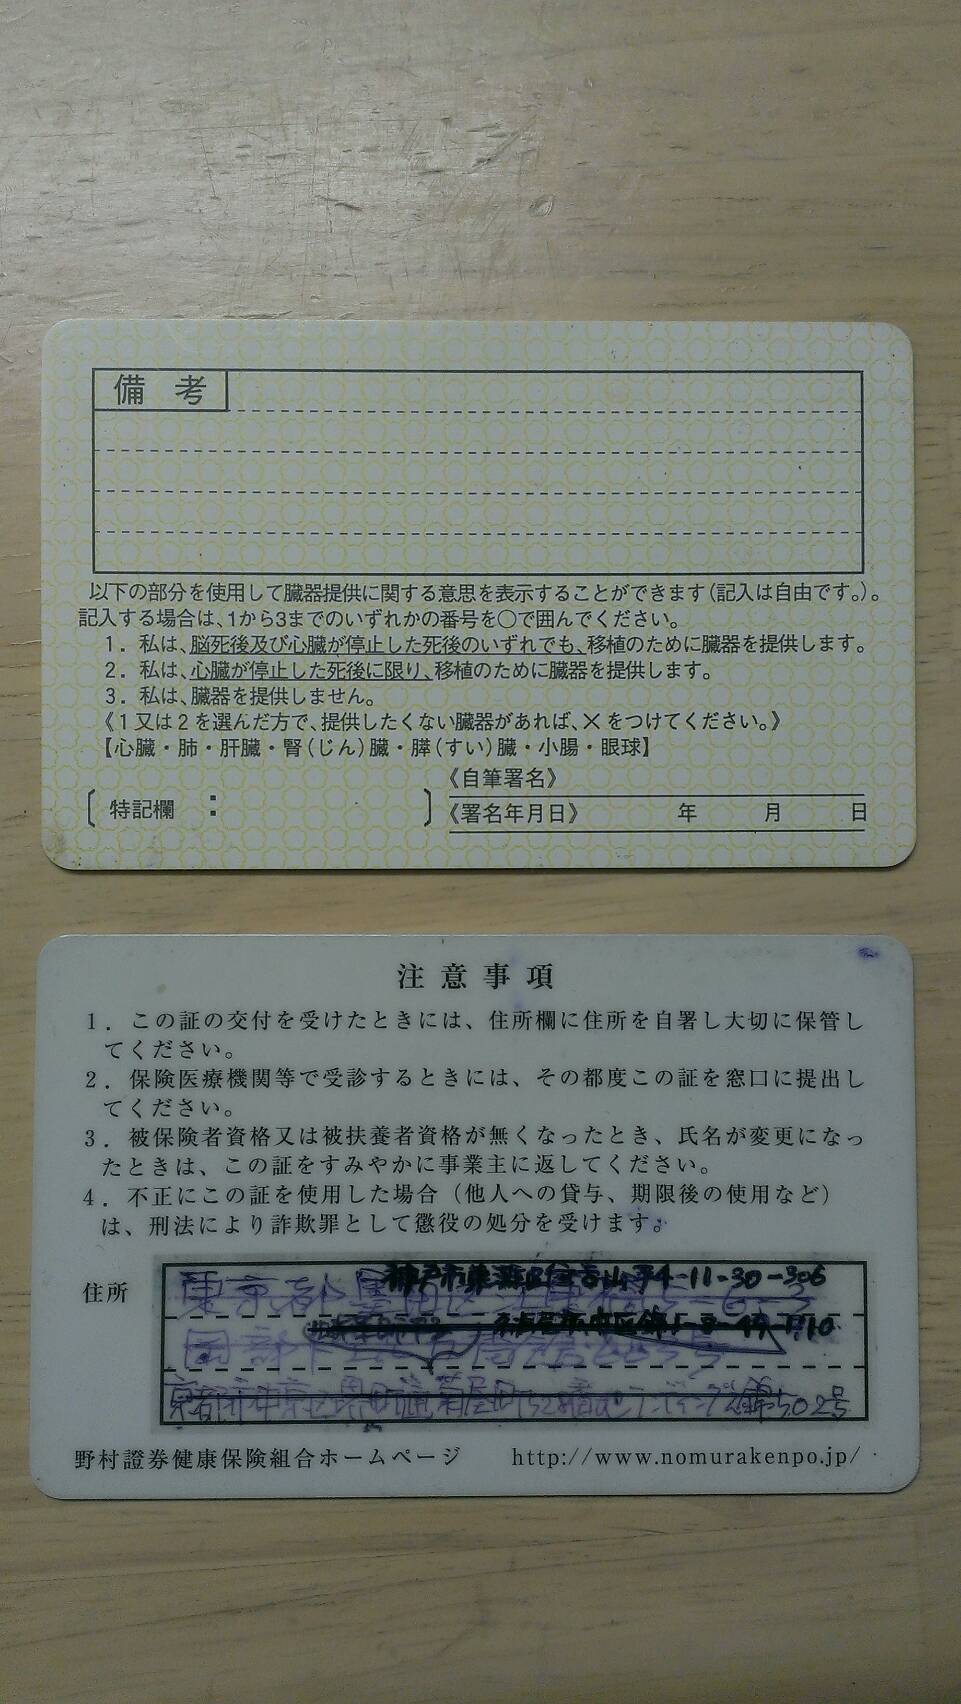 備考
以下の部分を使用して臓器提供に関する意思を表示することができます（記入は自由です。）。
記入する場合は、1から3までのいずれかの番号を○で囲んでください。
1．私は、脳死後及び心臓が停止した死後のいずれでも、移植のために臓器を提供します。
2．私は、心臓が停止した死後に限り、移植のために臓器を提供します。
3．私は、臓器を提供しません。
《1又は2を選んだ方で、提供したくない臓器があれば、×をつけてください。》
【心臓・肺・肝臓・腎（じん）臓・膵（すい）臓・小腸・眼球】
《自筆署名》
〔特記欄： 〕《署名年月日》 年 月 日
注意事項
1．この証の交付を受けたときには、住所欄に住所を自署し大切に保管し
てください。
2．保険医療機関等で受診するときには、その都度この証を窓口に提出し
てください。
3．被保険者資格又は被扶養者資格が無くなったとき、氏名が変更になっ
たときは、この証をすみやかに事業主に返してください。
4．不正にこの証を使用した場合（他人への貸与、期限後の使用など）
は、刑法により詐欺罪として懲役の処分を受けます。
住所
東京都
神戸市東灘区住吉山手4-11-30-306
502号
野村證券健康保険組合ホームページ http://www.nomurakenpo.jp/